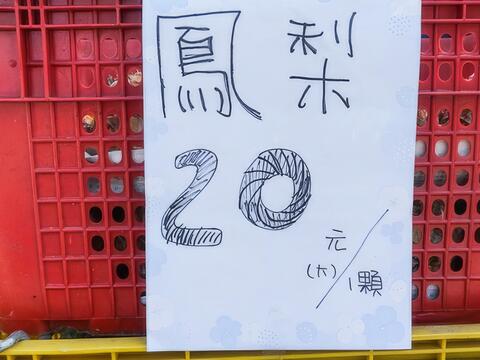 鳳梨
20元
(大)/1顆